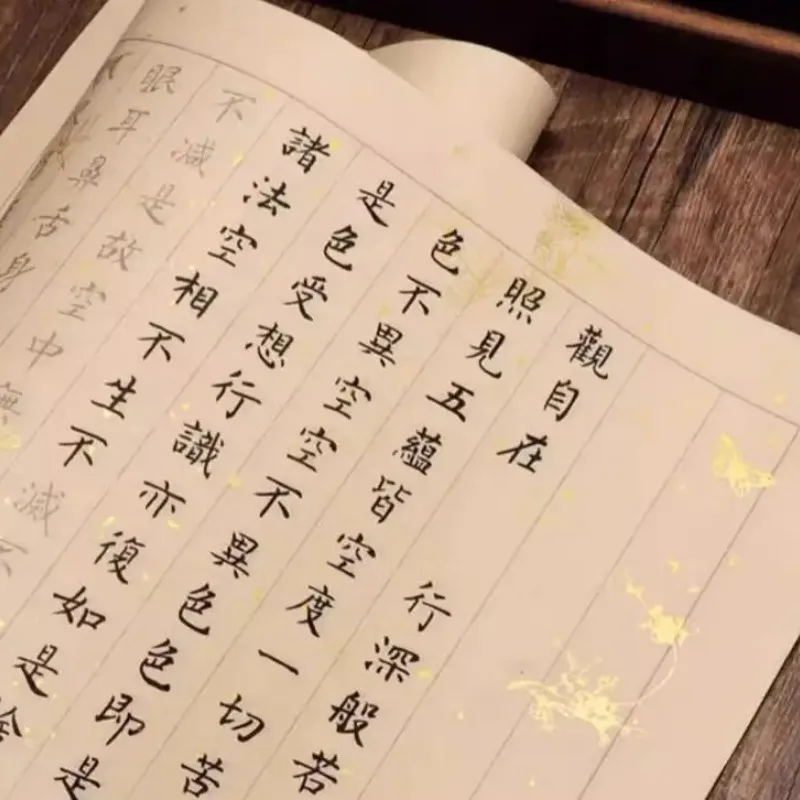 觀自在行深般若
照見五蘊皆空度一切苦
色不異空空不異色色即是
是色受想行識亦復如是
諸法空相不生不滅不
不減是故空中無
眼耳鼻舌身